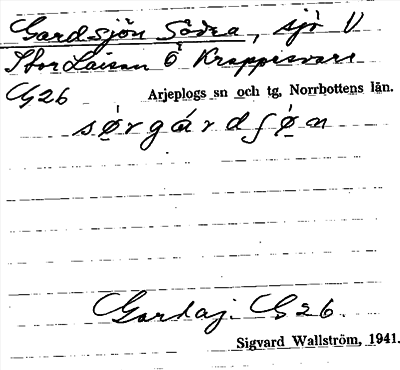 Gardsjön Södra, sjö V
Stor Laisan Ö Krappervare
C, 26 Arjeplogs sn och tg, Norrbottens län.
sørgárdʃøn
Gardaj. C, 26.
Sigvard Wallström, 1941.